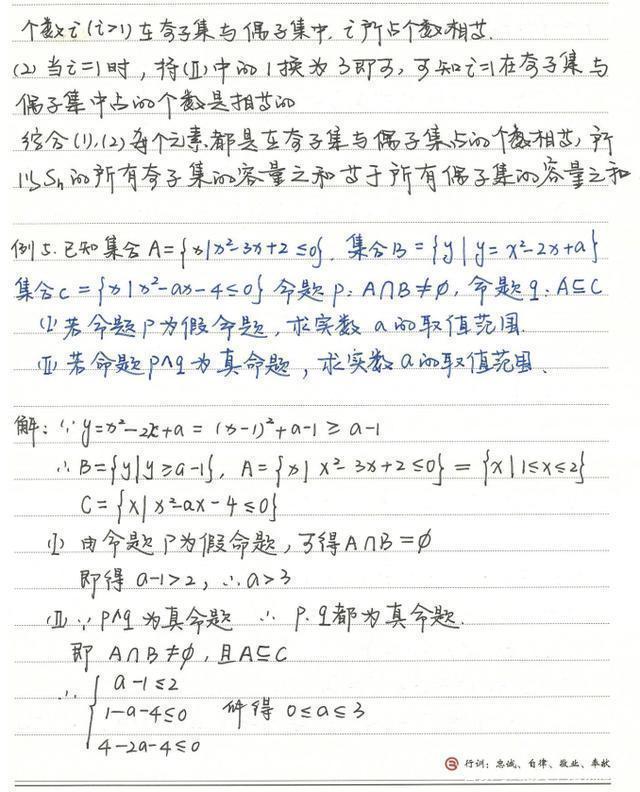 个数i(i>1)在奇子集与偶子集中,i所占个数相等.
(2)当i=1时,将(Ⅱ)中的1换为3即可,可知i=1在奇子集与
偶子集中占的个数是相等的
综合(1),(2)每个元素都是在奇子集与偶子集占的个数相等,所
以Sn的所有奇子集的容量之和等于所有偶子集的容量之和
例5.已知集合A={x|x²-3x+2≤0},集合B={y|y=x²-2x+a}
集合C={x|x²-ax-4≤0}命题p:A∩B≠∅,命题q:A⊆C
(Ⅰ)若命题P为假命题,求实数a的取值范围.
(Ⅱ)若命题p∧q为真命题,求实数a的取值范围.
解:∵y=x²-2x+a=(x-1)²+a-1≥a-1
∴B={y|y≥a-1},A={x|x²-3x+2≤0}={x|1≤x≤2}
C={x|x²-ax-4≤0}
(Ⅰ)由命题P为假命题,可得A∩B=∅
即得a-1>2,∴a>3
(Ⅱ)∵p∧q为真命题 ∴p.q都为真命题.
即A∩B≠∅,且A⊆C
∴{a-1≤2
1-a-4≤0 解得0≤a≤3
4-2a-4≤0
行训:忠诚、自律、敬业、奉献